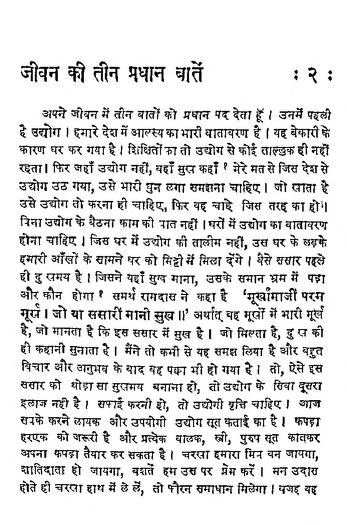 जीवन की तीन प्रधान बातें : २ :
अपने जीवन में तीन बातों को प्रधान पद देता हूँ । उनमें पहली
है उद्योग । हमारे देश में आलस्य का भारी वातावरण है । यह बेकारी के
कारण घर कर गया है । शिक्षितों का तो उद्योग से कोई ताल्लुक ही नहीं
रहता । फिर जहाँ उद्योग नहीं, वहाँ सुख कहाँ ? मेरे मत से जिस देश से
उद्योग उठ गया, उसे भारी घुन लगा समझना चाहिए । जो खाता है
उसे उद्योग तो करना ही चाहिए, फिर वह चाहे जिस तरह का हो ।
बिना उद्योग के बैठना काम की बात नहीं । घरों में उद्योग का वातावरण
होना चाहिए । जिस घर में उद्योग की तालीम नहीं, उस घर के लड़के
हमारी आँखों के सामने घर को मिट्टी में मिला देंगे । वैसे ससार पहले
ही दु खमय है । जिसने यहाँ सुख माना, उसके समान भ्रम में पड़ा
और कौन होगा ? समर्थ रामदास ने कहा है 'मूर्खामाजीं परम
मूर्ख । जो या ससारीं मानी सुख ॥' अर्थात् वह मूर्खों में भारी मूर्ख
है, जो मानता है कि इस ससार में सुख है । जो मिलता है, दु ख की
ही कहानी सुनाता है । मैंने तो कभी से यह समझ लिया है और बहुत
विचार और अनुभव के बाद यह पक्का भी हो गया है । तो, ऐसे इस
ससार को थोड़ा सा सुखमय बनाना हो, तो उद्योग के सिवा दूसरा
इलाज नहीं है । सफाई करनी हो, तो उद्योगी वृत्ति चाहिए । आज
सबके करने लायक और उपयोगी उद्योग सूत कताई का है । कपड़ा
हरएक को जरूरी है और प्रत्येक बालक, स्त्री, पुरुष सूत कातकर
अपना कपड़ा तैयार कर सकता है । चरखा हमारा मित्र बन जायगा,
शातिदाता हो जायगा, बशर्ते हम उस पर प्रेम करें । मन उदास
होते ही चरखा हाथ में ले लें, तो फौरन समाधान मिलेगा । वजह यह